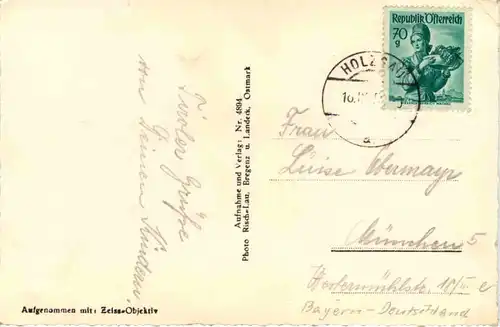 Tiroler Grüße
von Deinen Kindern.
Aufnahme und Verlag: Nr. 4894
Photo Risch-Lau, Bregenz u. Landeck, Ostmark
Aufgenommen mit: Zeiss-Objektiv
Republik Österreich
70
g
HOLZGAU
16.
a
Frau
Luise Obermayr
München 5
Westermühlstr. 18/II e
Bayern - Deutschland